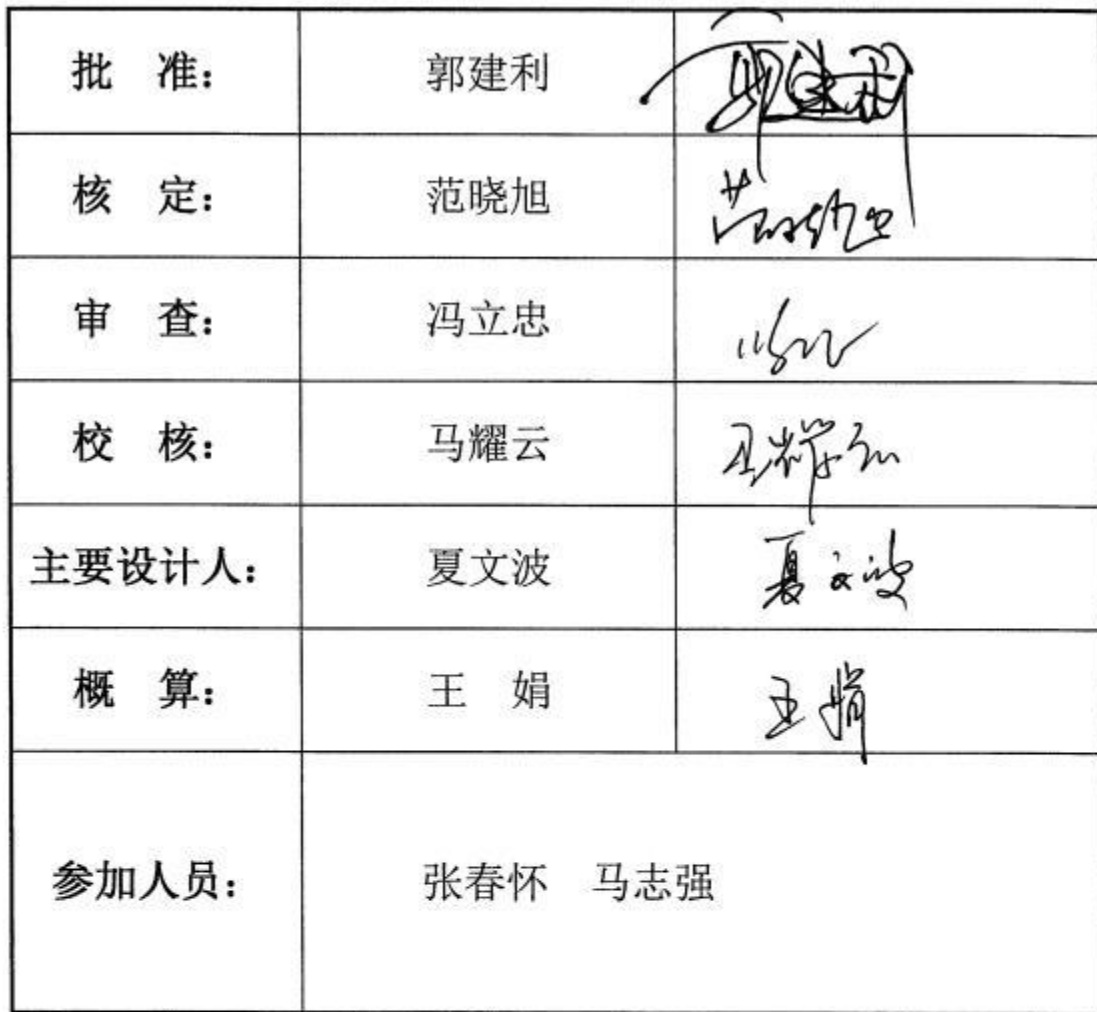 批 准： 郭建利 郭建利
核 定： 范晓旭
审 查： 冯立忠
校 核： 马耀云
主要设计人： 夏文波 夏文波
概 算： 王 娟 王娟
参加人员： 张春怀 马志强